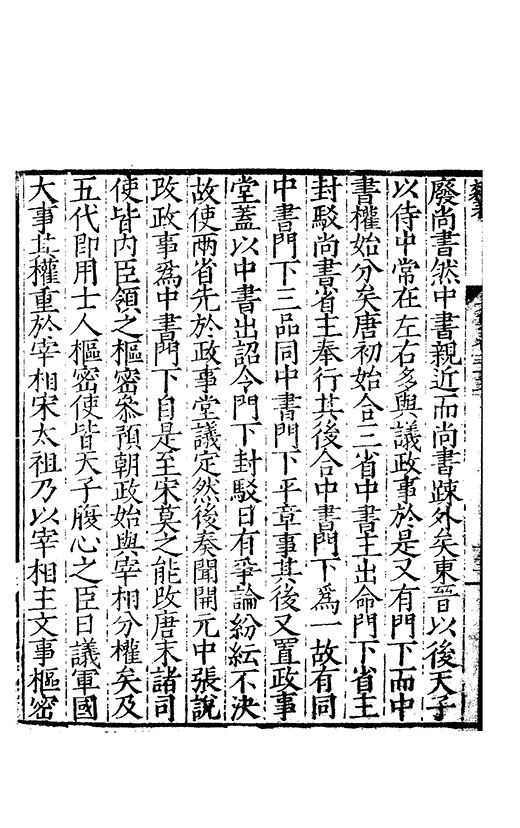 廢尚書然中書親近而尚書踈外矣東晉以後天子
以侍中常在左右多與議政事於是又有門下而中
書權始分矣唐初始合三省中書主出命門下省主
封駁尚書省主奉行其後合中書門下爲一故有同
中書門下三品同中書門下平章事其後又置政事
堂蓋以中書出詔令門下封駁日有爭論紛紜不決
故使兩省先於政事堂議定然後奏聞開元中張說
改政事爲中書門下自是至宋莫之能改唐末諸司
使皆内臣領之樞密叅預朝政始與宰相分權矣及
五代即用士人樞密使皆天子腹心之臣日議軍國
大事其權重於宰相宋太祖乃以宰相主文事樞密